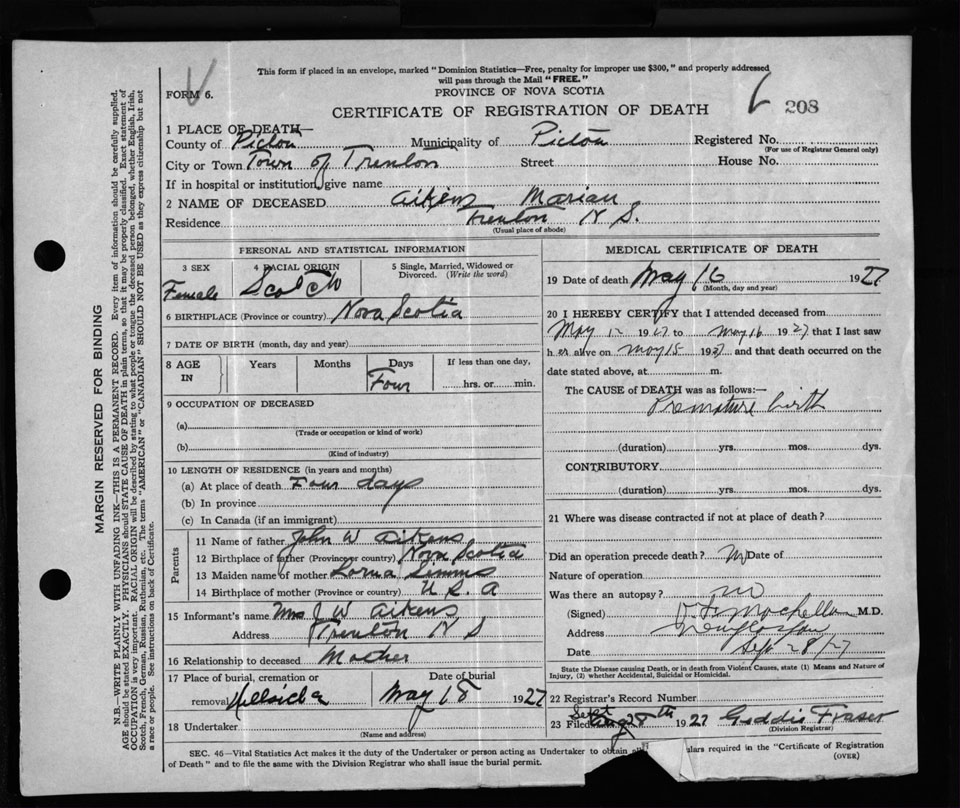 This form if placed in an envelope, marked "Dominion Statistics—Free, penalty for improper use $300," and properly addressed
will pass through the Mail "FREE."
FORM 6.
PROVINCE OF NOVA SCOTIA
CERTIFICATE OF REGISTRATION OF DEATH
208
1 PLACE OF DEATH—
County of Pictou Municipality of Pictou Registered No.
(For use of Registrar General only)
City or Town Town of Trenton Street House No.
If in hospital or institution, give name
2 NAME OF DECEASED Aikens Marian
Residence Trenton N S.
(Usual place of abode)
MARGIN RESERVED FOR BINDING
N.B.—WRITE PLAINLY WITH UNFADING INK—THIS IS A PERMANENT RECORD. Every item of information should be carefully supplied.
AGE should be stated EXACTLY. PHYSICIANS should STATE CAUSE OF DEATH in plain terms, so that it may be properly classified. Exact statement of
OCCUPATION is very important. RACIAL ORIGIN will be described by stating to what people or tongue the deceased person belonged, whether English, Irish,
Scotch, French, German, Russian, Ruthenian, etc. The terms "AMERICAN" or "CANADIAN" SHOULD NOT BE USED as they express citizenship but not
a race or people. See instructions on back of Certificate.
PERSONAL AND STATISTICAL INFORMATION
3 SEX
Female
4 RACIAL ORIGIN
Scotch
5 Single, Married, Widowed or
Divorced. (Write the word)
6 BIRTHPLACE (Province or country) Nova Scotia
7 DATE OF BIRTH (month, day and year)
8 AGE
IN
Years Months Days
Four
If less than one day,
hrs. or min.
9 OCCUPATION OF DECEASED
(a)
(Trade or occupation or kind of work)
(b)
(Kind of industry)
10 LENGTH OF RESIDENCE (in years and months)
(a) At place of death Four days
(b) In province
(c) In Canada (if an immigrant)
Parents
11 Name of father John W Aikens
12 Birthplace of father (Province or country) Nova Scotia
13 Maiden name of mother Lorna Simms
14 Birthplace of mother (Province or country) U.S.A
15 Informant's name Mrs J. W Aikens
Address Trenton N S
16 Relationship to deceased Mother
17 Place of burial, cremation or Date of burial
removal Hillside May 18 1927
18 Undertaker
(Name and address)
MEDICAL CERTIFICATE OF DEATH
19 Date of death May 16 1927
(Month, day and year)
20 I HEREBY CERTIFY that I attended deceased from
May 12 1927 to May 16 1927 that I last saw
her alive on May 15 1927 and that death occurred on the
date stated above, at m.
The CAUSE of DEATH was as follows:—
Premature birth
(duration) yrs. mos. dys.
CONTRIBUTORY
(duration) yrs. mos. dys.
21 Where was disease contracted if not at place of death?
Did an operation precede death? No Date of
Nature of operation
Was there an autopsy? no
(Signed) M.D.
Address
Date Sept 28/27
State the Disease causing Death, or in death from Violent Causes, state (1) Means and Nature of
Injury, (2) whether Accidental, Suicidal or Homicidal.
22 Registrar's Record Number
23 Filed Sept 1927 Geddie Fraser
(Division Registrar)
SEC. 46—Vital Statistics Act makes it the duty of the Undertaker or person acting as Undertaker to obtain all ulars required in the "Certificate of Registration
of Death" and to file the same with the Division Registrar who shall issue the burial permit.
(OVER)